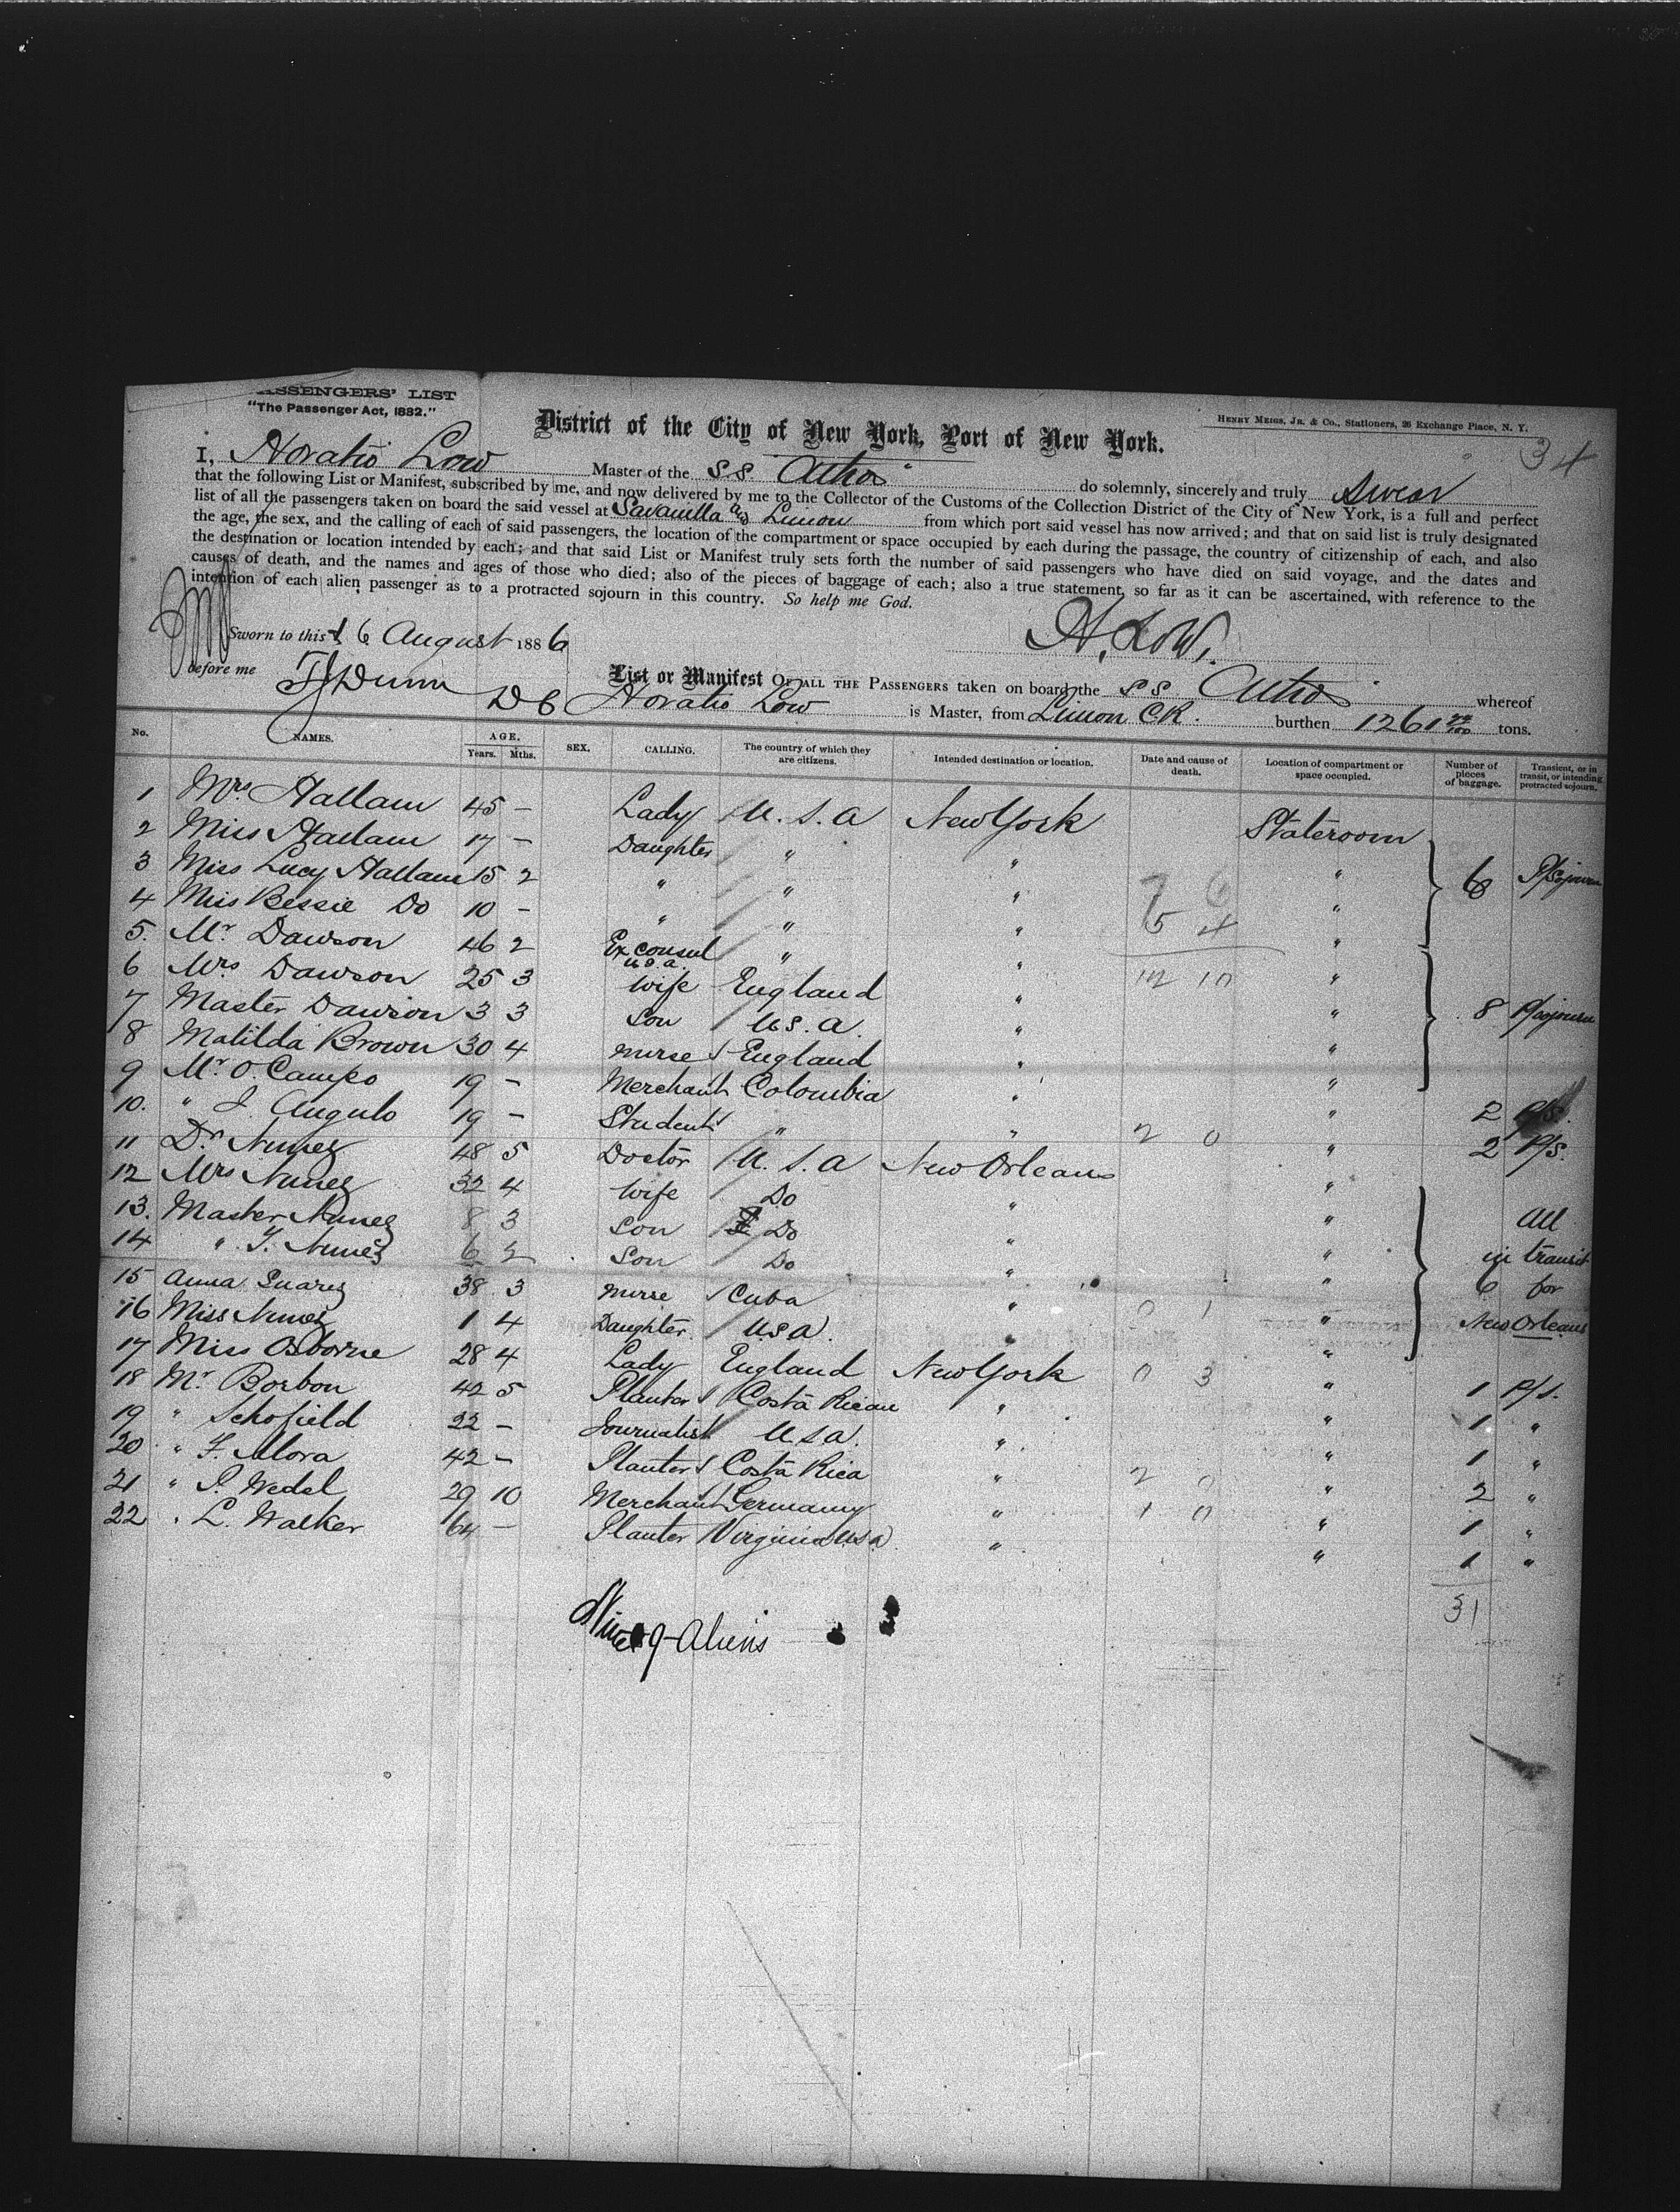 PASSENGERS' LIST
"The Passenger Act, 1882."
District of the City of New York, Port of New York.
HENRY MEIGS, JR. & CO., Stationers, 26 Exchange Place, N. Y.
34
I, Horatio Low Master of the S.S. "Athos" do solemnly, sincerely and truly Swear
that the following List or Manifest, subscribed by me, and now delivered by me to the Collector of the Customs of the Collection District of the City of New York, is a full and perfect
list of all the passengers taken on board the said vessel at Savanilla and Limon from which port said vessel has now arrived; and that on said list is truly designated
the age, the sex, and the calling of each of said passengers, the location of the compartment or space occupied by each during the passage, the country of citizenship of each, and also
the destination or location intended by each; and that said List or Manifest truly sets forth the number of said passengers who have died on said voyage, and the dates and
causes of death, and the names and ages of those who died; also of the pieces of baggage of each; also a true statement, so far as it can be ascertained, with reference to the
intention of each alien passenger as to a protracted sojourn in this country. So help me God.
Sworn to this 16 August 1886
H. Low.
before me TJ Dunn DC
List or Manifest OF ALL THE PASSENGERS taken on board the SS Athos whereof
Horatio Low is Master, from Limon C.R. burthen 1261 tons.
No. NAMES. AGE. Years. Mths. SEX. CALLING. The country of which they are citizens. Intended destination or location. Date and cause of death. Location of compartment or space occupied. Number of pieces of baggage. Transient, or in transit, or intending protracted sojourn.
1 Mrs Hallam 45 – Lady U.S.A New York Stateroom
2 Miss Hallam 17 – Daughter " " "
3 Miss Lucy Hallam 15 2 " " " " 6 P/Sojourn
4 Miss Bessie Do 10 – " " " "
5. Mr Dawson 46 2 Ex consul U.S.A. " " "
6 Mrs Dawson 25 3 Wife England " "
7 Master Dawson 3 3 Son U.S.A. " " 8 P/sojourn
8 Matilda Brown 30 4 nurse England " "
9 Mr O. Campo 19 – Merchant Colombia " " 2 P/S.
10. " J. Angulo 19 – Student " " " 2 P/S.
11 Dr Nunez 48 5 Doctor U.S.A New Orleans "
12 Mrs Nunez 32 4 Wife Do " "
13. Master Nunez 8 3 Son Do " " All
14 " T. Nunez 6 2 Son Do " " in transit
15 Anna Suarez 38 3 nurse Cuba " " 6 for
16 Miss Nunez 1 4 Daughter USA. " New Orleans
17 Miss Osborne 28 4 Lady England New York " 1 P/S.
18 Mr Borbon 42 5 Planter Costa Rican " " 1 "
19 " Schofield 22 – Journalist U.S.A. " " 1 "
20 " F. Mora 42 – Planter Costa Rica " " 2 "
21 " P. Wedel 29 10 Merchant Germany " " 1 "
22 " L. Walker 64 – Planter Virginia USA " " 1 "
31
Nine 9-Aliens